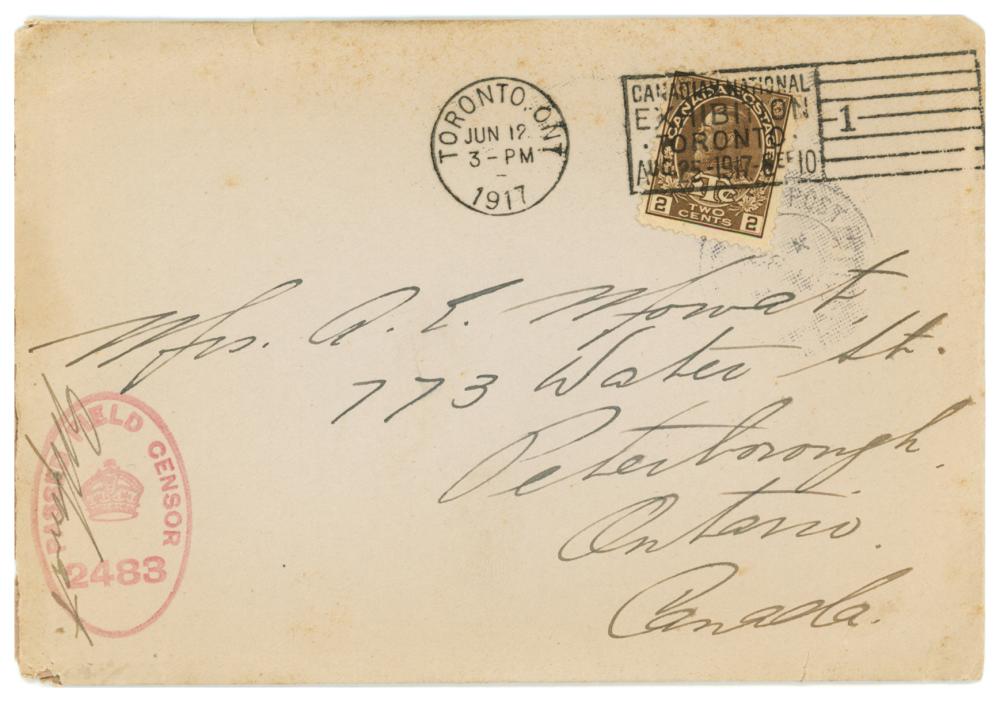 TORONTO, ONT
JUN 12
3-PM
1917
CANADIAN NATIONAL
EXHIBITION
TORONTO
AUG 25-1917-SEP 10
1
CANADA POSTAGE
2 TWO CENTS 2
POST
Mrs. A. E. Mowat
773 Water St.
Peterborough.
Ontario.
Canada.
PASSED FIELD CENSOR
2483